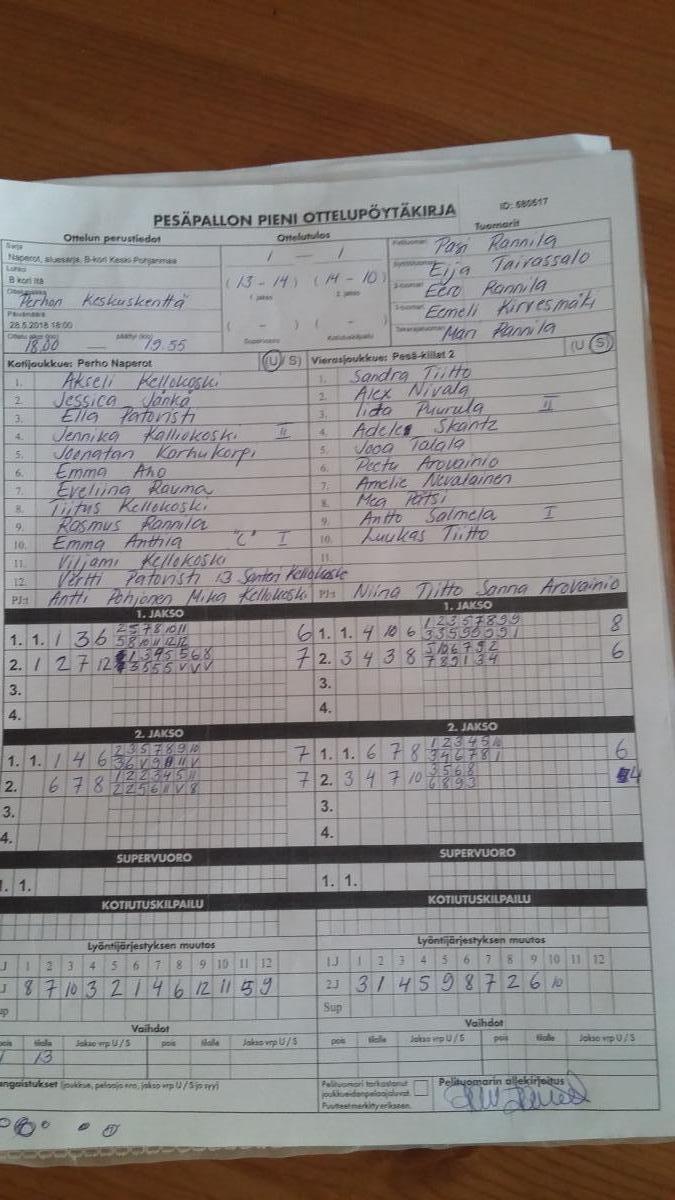 PESÄPALLON PIENI OTTELUPÖYTÄKIRJA
ID: 580517
Ottelun perustiedot
Ottelutulos
Tuomarit
Sarja
Naperot, aluesarja, B-kori Keski-Pohjanmaa
Lohko
B kori itä
Perhon Keskuskenttä
Päivämäärä
28.5.2018 18:00
18.00 — 19.55
1 — 1
(13 - 14) (14 - 10)
1. jakso 2. jakso
( - ) ( - )
Supervuoro Kotiutuskilpailu
Pasi Rannila
Eija Taivassalo
Eero Rannila
Eemeli Kirvesmäki
Mari Rannila
Kotijoukkue: Perho Naperot (U / S)
1. Akseli Kellokoski
2. Jessica Jänkä
3. Ella Patovisti
4. Jennika Kalliokoski II
5. Joonatan Korhukorpi
6. Emma Aho
7. Eveliina Rauma
8. Tiitus Kellokoski
9. Rasmus Rannila
10. Emma Anthla "C" I
11. Viljami Kellokoski
12. Vertti Patovisti 13 Santeri Kellokoski
PJ:t Antti Pohjonen Mika Kellokoski
Vierasjoukkue: Pesä-kiilat 2 (U / S)
1. Sandra Tiitto
2. Alex Nivala
3. Iida Puurula II
4. Adele Skantz
5. Jooa Talala
6. Peetu Arovainio
7. Amelie Nevalainen
8. Mea Pätsi
9. Antto Salmela I
10. Luukas Tiitto
11.
PJ:t Niina Tiitto Sanna Arovainio
1. JAKSO
1. 1. 1 3 6 2 5 7 8 10 11 6
5 8 10 11 12 12
2. 1 2 7 12 1 3 4 5 5 6 8 7
3 5 5 5 V V V
3.
4.
1. JAKSO
1. 1. 4 10 6 1 2 3 5 7 8 9 9 8
2. 3 4 3 8 5 10 6 7 9 2 6
7 8 9 1 3 4
3.
4.
2. JAKSO
1. 1. 1 4 6 2 3 5 7 8 9 10 7
2. 6 7 8 1 2 2 3 4 5 11 7
2 2 5 6 11 V 8
3.
4.
2. JAKSO
1. 1. 6 7 8 1 2 3 4 5 10 6
3 4 6 7 8 1
2. 3 4 7 10 3 5 6 8 4
6 8 9 3
3.
4.
SUPERVUORO
1. 1.
KOTIUTUSKILPAILU
SUPERVUORO
1. 1.
KOTIUTUSKILPAILU
Lyöntijärjestyksen muutos
J 1 2 3 4 5 6 7 8 9 10 11 12
J 8 7 10 3 2 1 4 6 12 11 5 9
up
Lyöntijärjestyksen muutos
1.J 1 2 3 4 5 6 7 8 9 10 11 12
2.J 3 1 4 5 9 8 7 2 6 10
Sup
Vaihdot
pois tilalle Jakso vrp U / S pois tilalle Jakso vrp U / S
13
Vaihdot
pois tilalle Jakso vrp U / S pois tilalle Jakso vrp U / S
angaistukset (joukkue, pelaaja nro, jakso vrp U / S ja syy)
Pelituomari tarkastanut
joukkueidenpelaajaluvat.
Puutteet merkitty erikseen.
Pelituomarin allekirjoitus